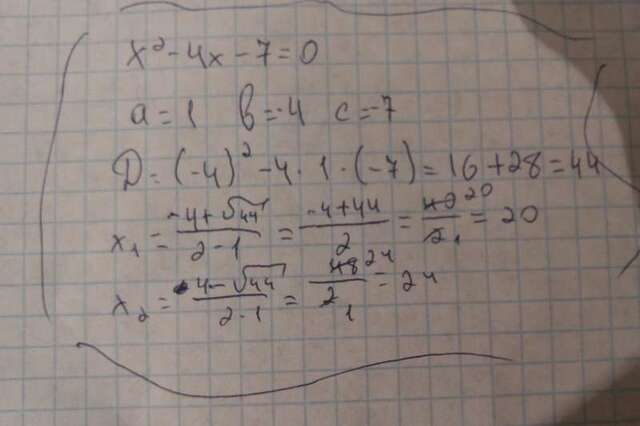 x² - 4x - 7 = 0
a = 1 b = -4 c = -7
D = (-4)² - 4 · 1 · (-7) = 16 + 28 = 44
x₁ = (-4 + √44)/(2 - 1) = (-4 + 44)/2 = 40 20/2 1 = 20
x₂ = (-4 - √44)/(2 · 1) = 48 24/2 1 = 24